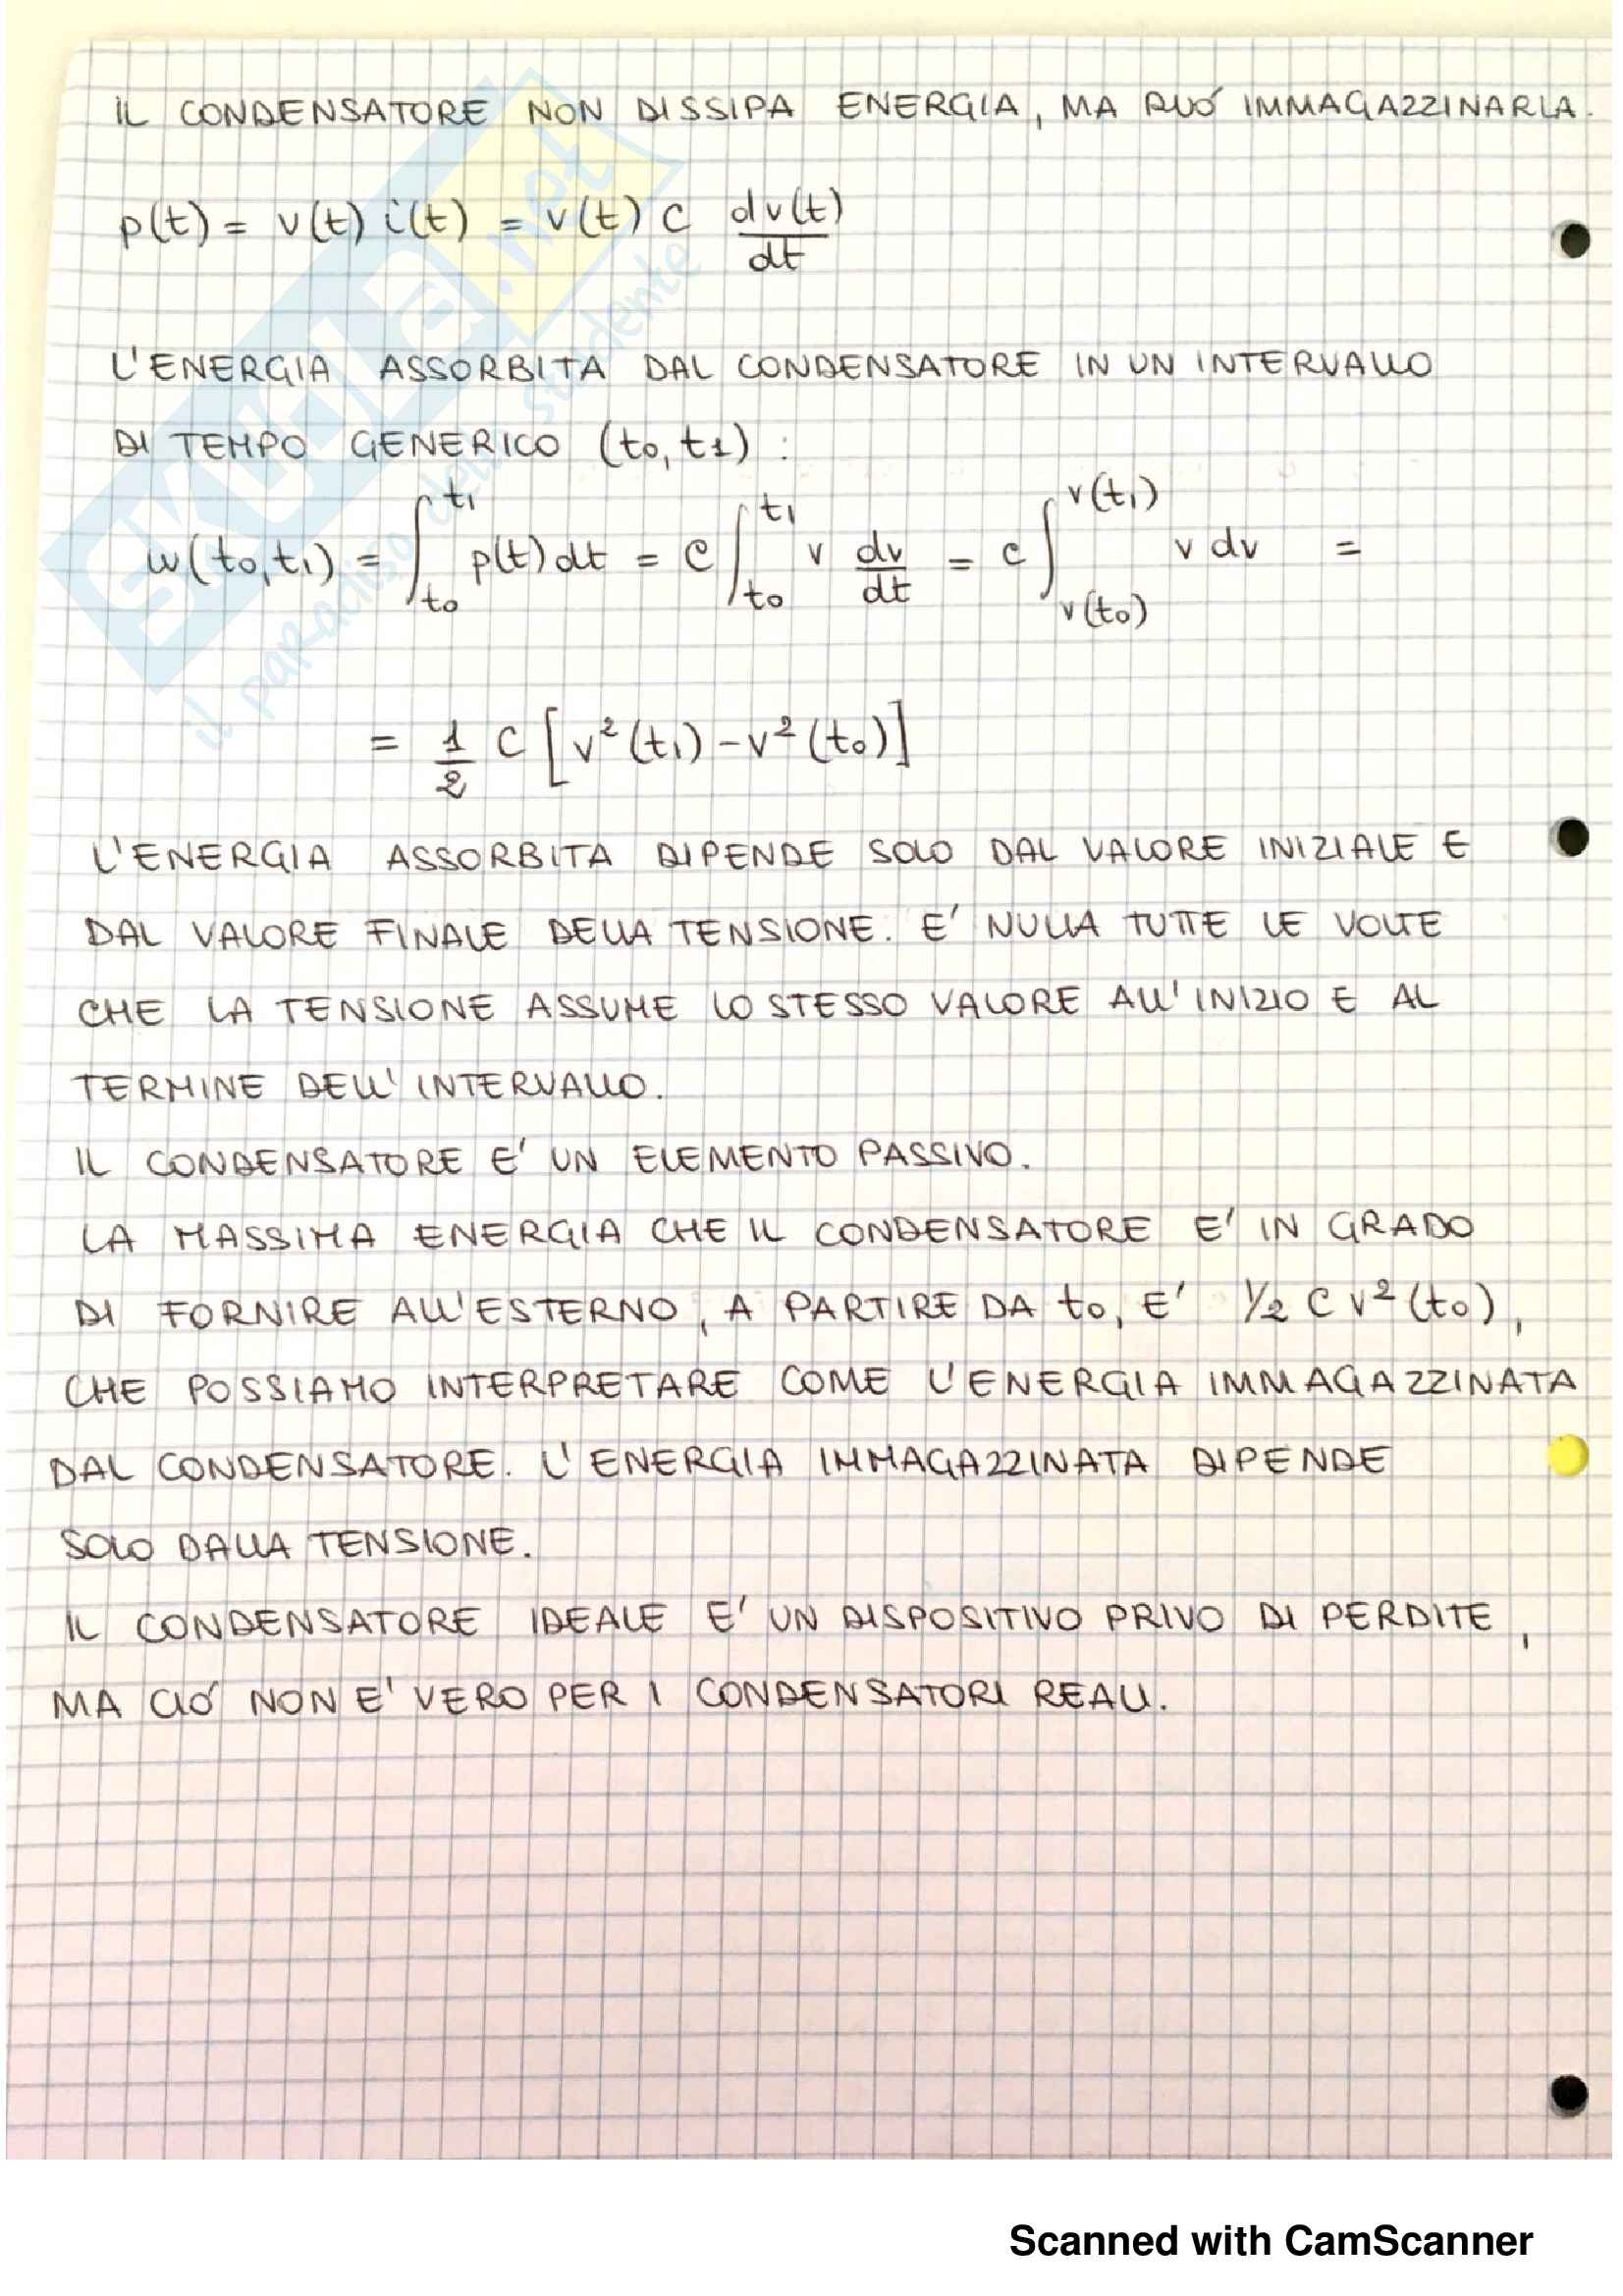 IL CONDENSATORE NON DISSIPA ENERGIA, MA PUÓ IMMAGAZZINARLA.
p(t) = v(t) i(t) = v(t) C dv(t)/dt
L'ENERGIA ASSORBITA DAL CONDENSATORE IN UN INTERVALLO
DI TEMPO GENERICO (t0, t1) :
w(t0,t1) = ∫_{t0}^{t1} p(t) dt = C ∫_{t0}^{t1} v dv/dt = C ∫_{v(t0)}^{v(t1)} v dv =
= 1/2 C [v²(t1) - v²(t0)]
L'ENERGIA ASSORBITA DIPENDE SOLO DAL VALORE INIZIALE E
DAL VALORE FINALE DELLA TENSIONE. E' NULLA TUTTE LE VOLTE
CHE LA TENSIONE ASSUME LO STESSO VALORE ALL'INIZIO E AL
TERMINE DELL'INTERVALLO.
IL CONDENSATORE E' UN ELEMENTO PASSIVO.
LA MASSIMA ENERGIA CHE IL CONDENSATORE E' IN GRADO
DI FORNIRE ALL'ESTERNO, A PARTIRE DA t0, E' 1/2 C v²(t0),
CHE POSSIAMO INTERPRETARE COME L'ENERGIA IMMAGAZZINATA
DAL CONDENSATORE. L'ENERGIA IMMAGAZZINATA DIPENDE
SOLO DALLA TENSIONE.
IL CONDENSATORE IDEALE E' UN DISPOSITIVO PRIVO DI PERDITE,
MA CIÓ NON E' VERO PER I CONDENSATORI REALI.
SKUOLA.net
il paradiso dello studente
Scanned with CamScanner